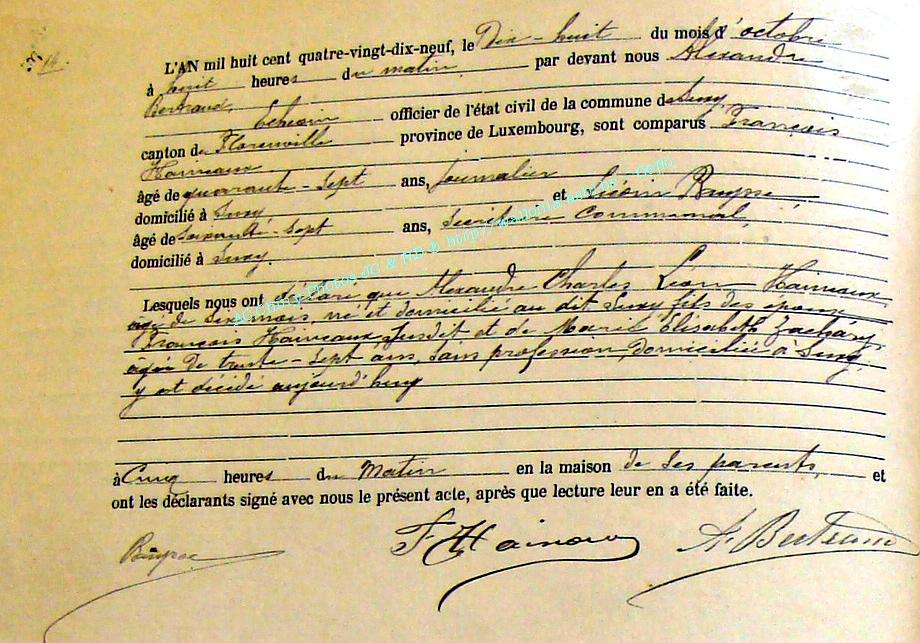 14.
L'AN mil huit cent quatre-vingt-dix-neuf, le Dix-huit du mois d'octobre
à huit heures du matin par devant nous Alexandre
Bertrand, Echevin officier de l'état civil de la commune de Suxy,
canton de Florenville province de Luxembourg, sont comparus François
Hainaux
âgé de quarante-sept ans, journalier
domicilié à Suxy et Léon
âgé de soixante-sept ans, Secrétaire Communal,
domicilié à Suxy.
Lesquels nous ont déclaré que Alexandre Charles Léon Hainaux,
âgé de six mois, né et domicilié au dit Suxy fils des époux
François Hainaux, susdit et de Marie Elisabeth Zachary,
âgée de trente-sept ans, sans profession, domiciliée à Suxy,
y est décédé aujourd'huy
à Cinq heures du Matin en la maison de ses parents, et
ont les déclarants signé avec nous le présent acte, après que lecture leur en a été faite.
F Hainaux A. Bertrand